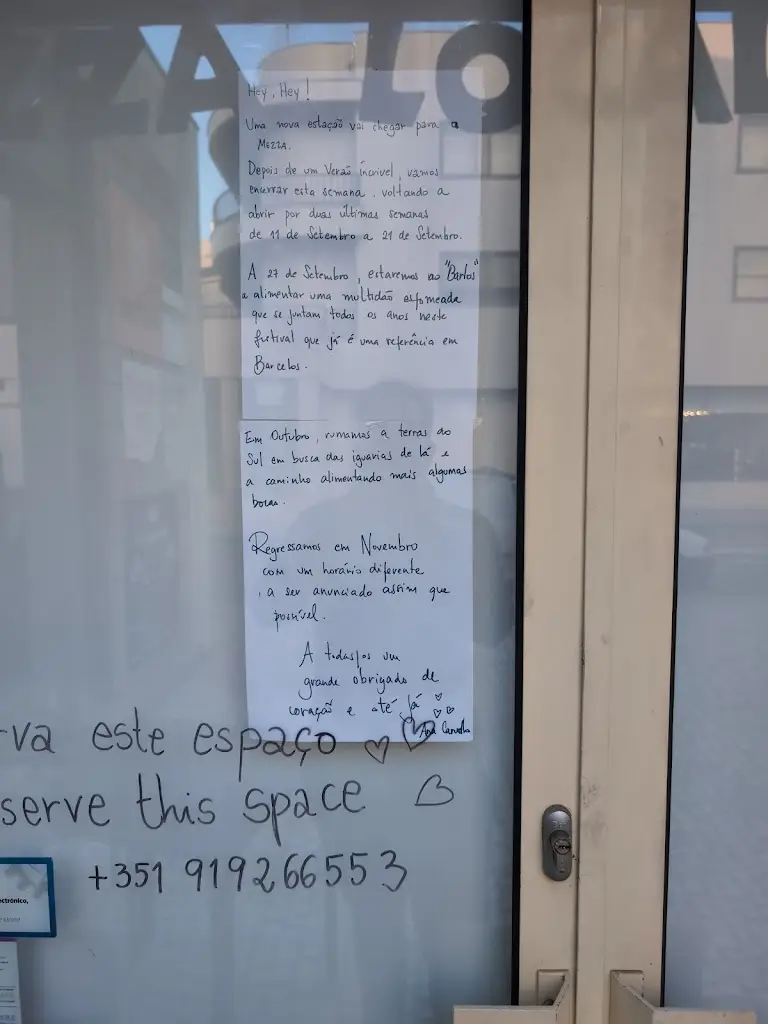 Hey, Hey!
Uma nova estação vai chegar para a
MEZZA.
Depois de um Verão incrível, vamos
encerrar esta semana, voltando a
abrir por duas últimas semanas
de 11 de Setembro a 21 de Setembro.
A 27 de Setembro, estaremos ao "Barlos"
a alimentar uma multidão esfomeada
que se juntam todos os anos neste
festival que já é uma referência em
Barcelos.
Em Outubro, rumamos a terras do
Sul em busca das iguarias de lá e
a caminho alimentando mais algumas
bocas.
Regressamos em Novembro
com um horário diferente
, a ser anunciado assim que
possível.
A todas/os um
grande obrigado de
coração e até já
Ana
rva este espaço
serve this space
+351 919266553
ectrónico,